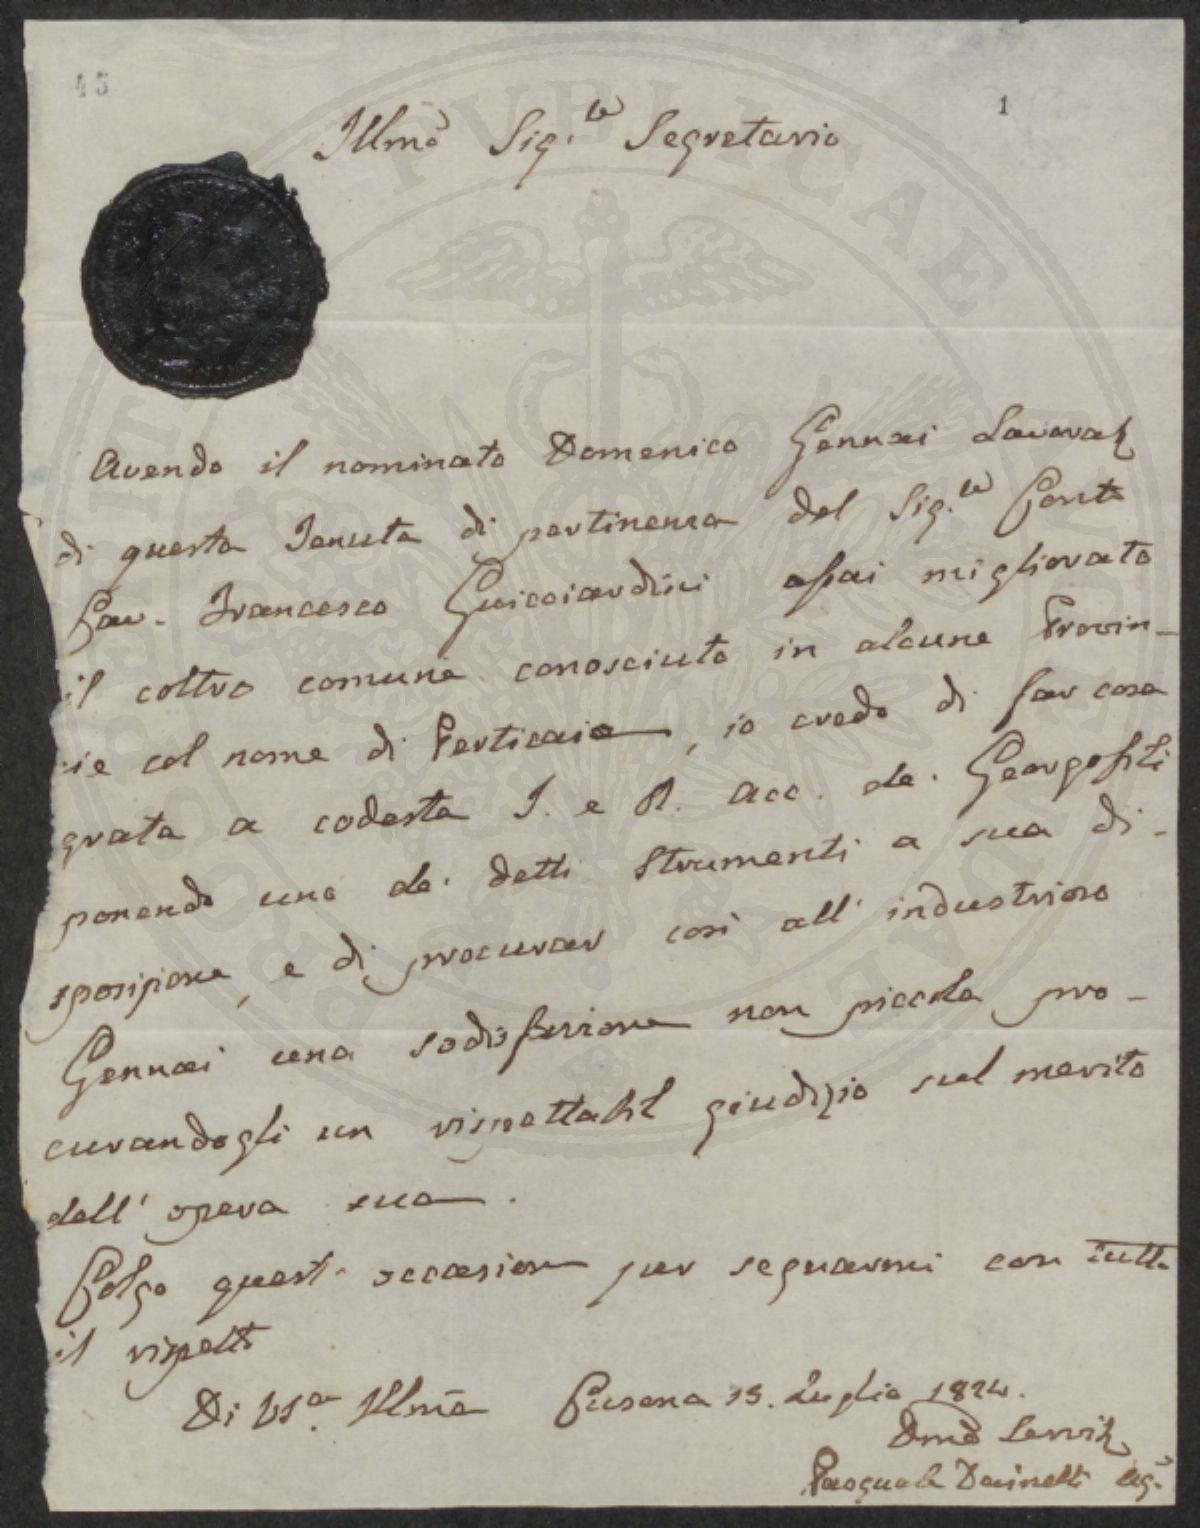 45
1
Illmo Sig.re Segretario
Avendo il nominato Domenico Gennai Lavorat.e
di questa Tenuta di pertinenza del Sig.re Conte
Cav. Francesco Guicciardini assai migliorato
il coltro comune conosciuto in alcune Provin-
cie col nome di Perticaia, io credo di far cosa
grata a codesta I. e R. Acc. de' Georgofili
ponendo uno de' detti Strumenti a sua di-
sposizione, e di procurar così all' industrioso
Gennai una sodisfazione non piccola pro-
curandogli un rispettabil giudizio sul merito
dell' opera sua.
Colgo quest' occasione per segnarmi con tutto
il rispetto
Di VS.a Illma Cusona 15. Luglio 1824.
Dmo Servit.e
Pasquale